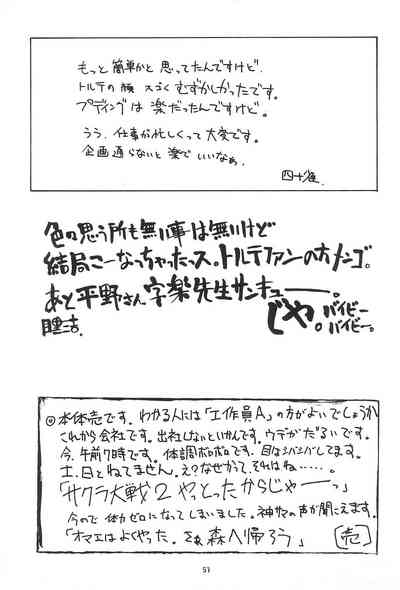 もっと簡単かと思ってたんですけど、
トルテの顔 スゴくむずかしかったです。
プディングは楽だったんですけど。
うう、仕事が忙しくって大変です。
企画通らないと楽でいいなぁ。
四十雀
色の思う所も無い事は無いけど
結局こーなっちゃったっス。トルテファンの方メンゴ。
あと平野さん、字楽先生サンキュー。
じゃ。バイビー
バイビー。
本体売です。わかる人には「工作員A」の方がよいでしょうか
これから会社です。出社しないといかんです。ウデがだるいです。
今、午前7時です。体調ボロボロです。目はシバシバしてます。
土、日とねてません。え?なぜかって、それはね……。
「サクラ大戦2 やっとったからじゃーっ」
今ので体力ゼロになってしまいました。神サマの声が聞こえます。
「オマエはよくやった。さあ森へ帰ろう」 (売)
51